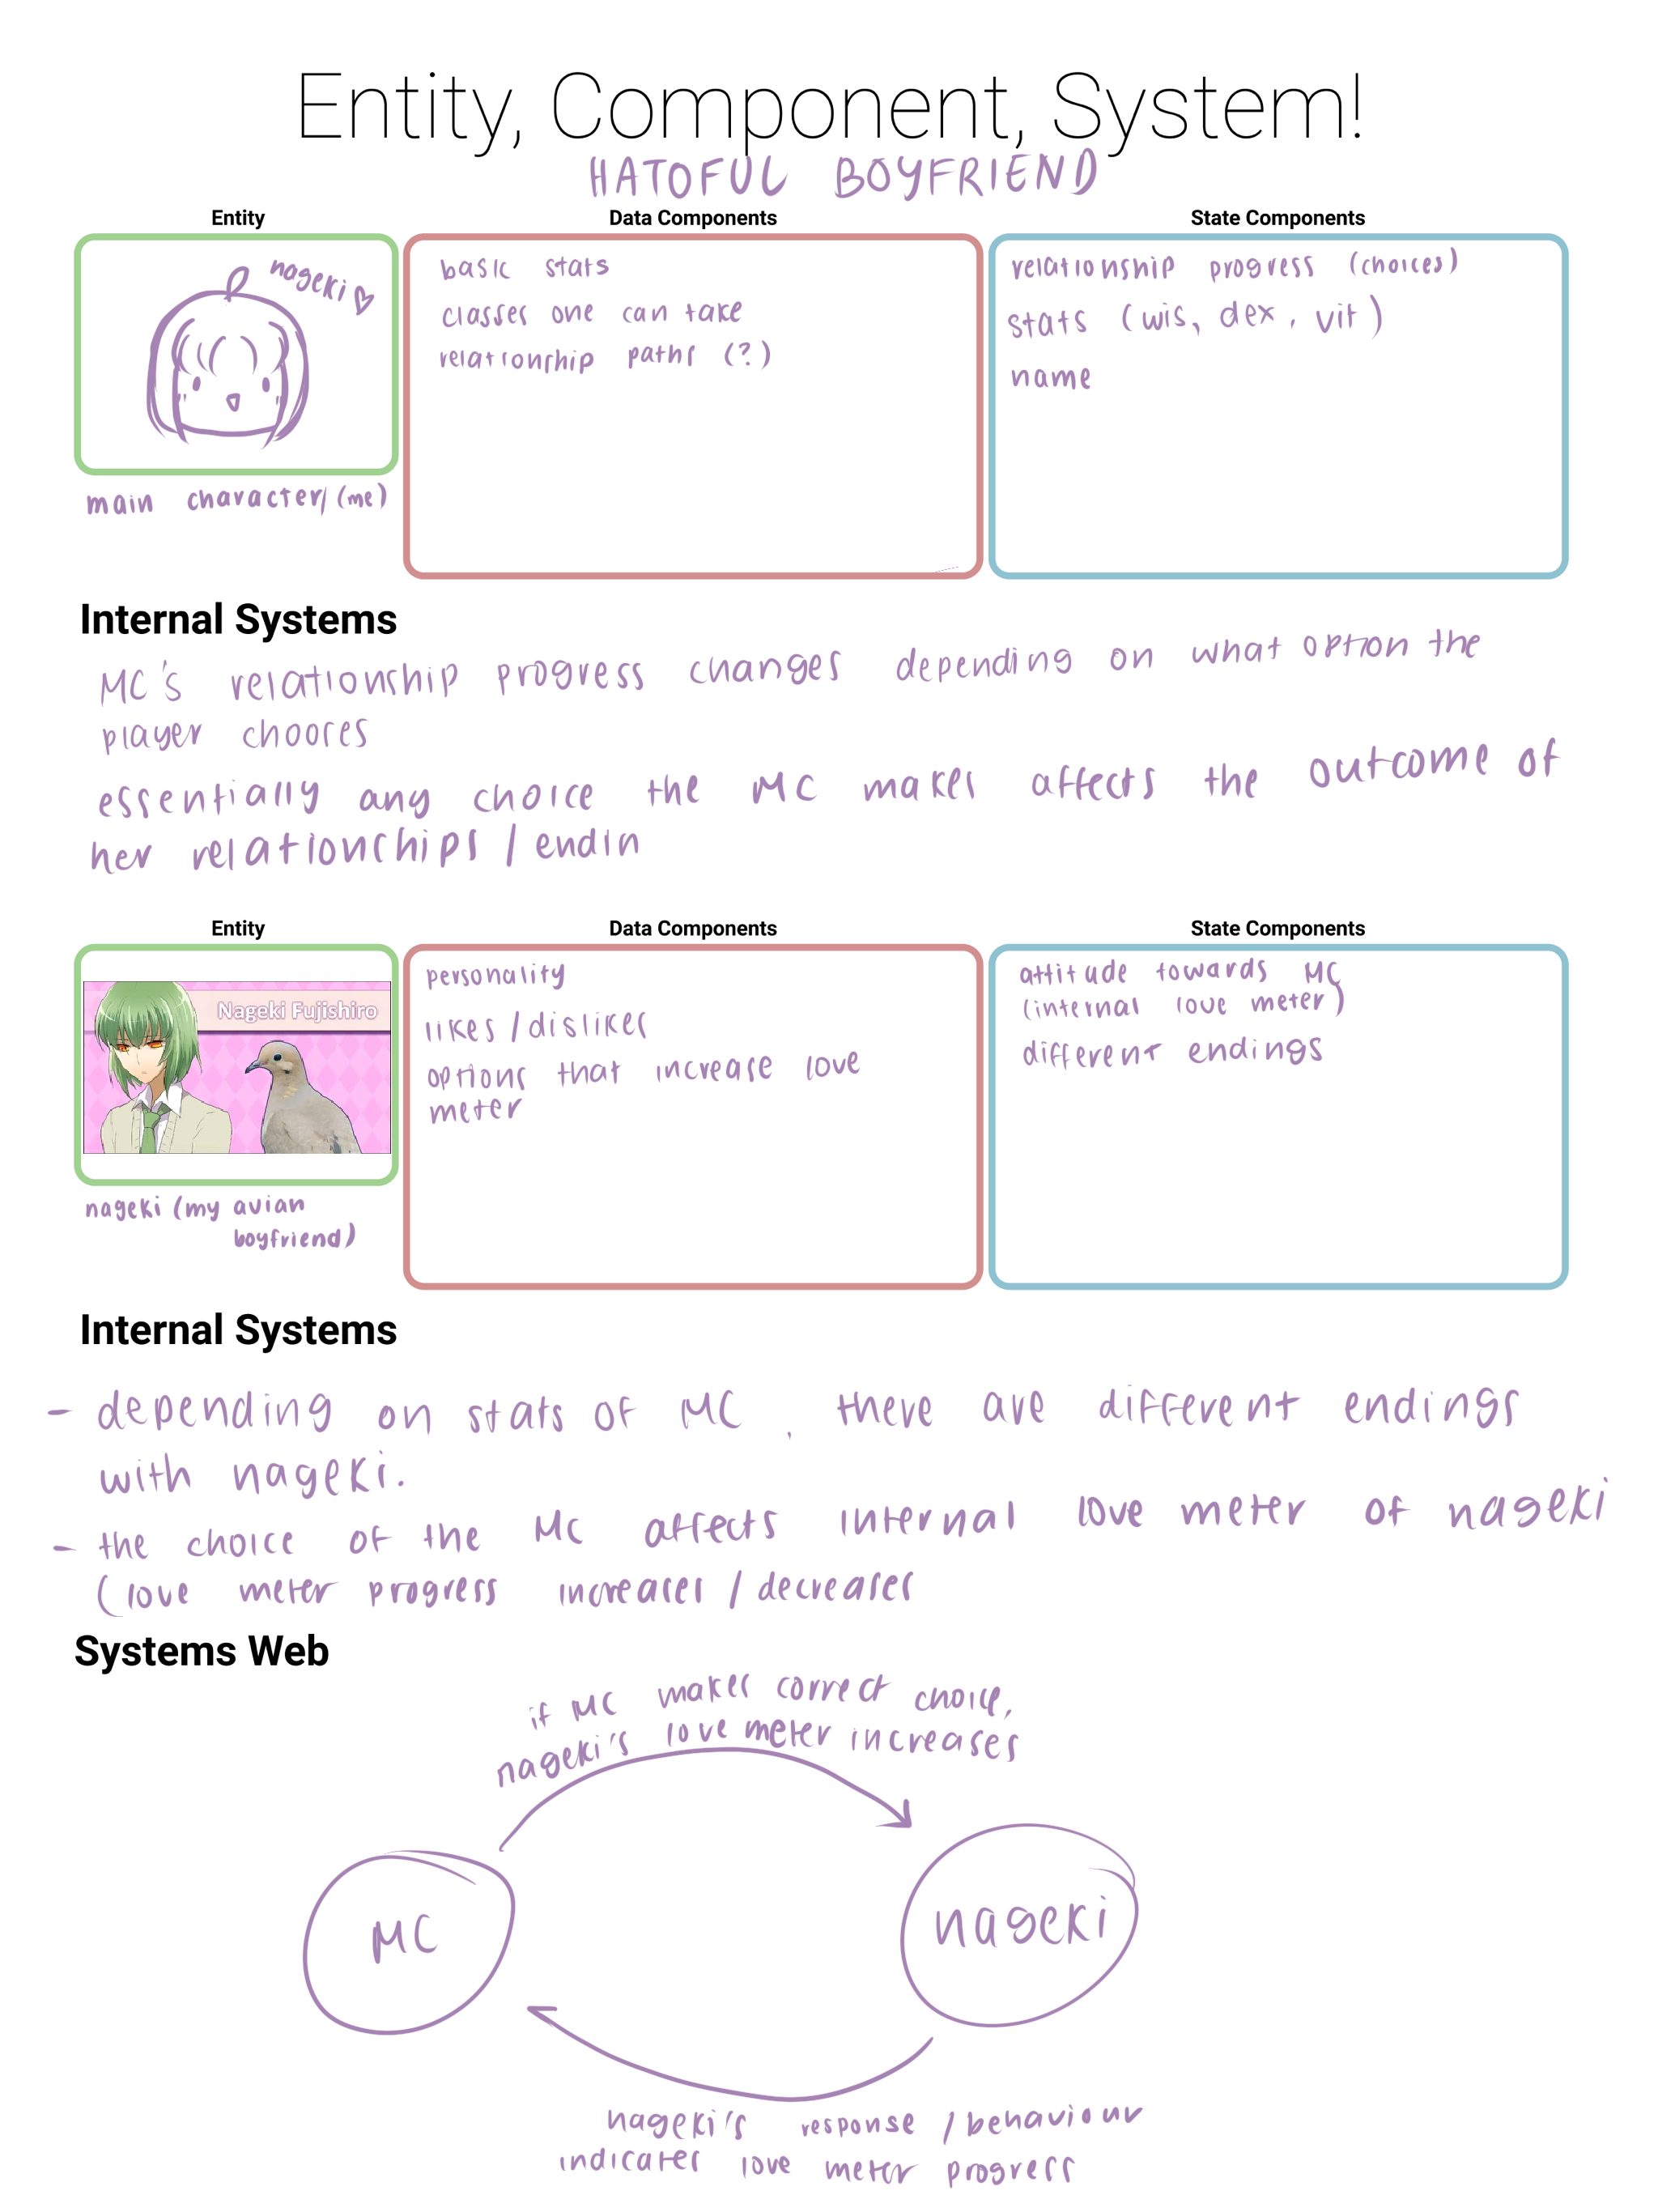 Entity, Component, System!
HATOFUL BOYFRIEND
Entity
Data Components
State Components
nageki
main character/(me)
basic stats
classes one can take
relationship paths (?)
relationship progress (choices)
stats (wis, dex, vit)
name
Internal Systems
MC's relationship progress changes depending on what option the
player chooses
essentially any choice the MC makes affects the outcome of
her relationships / endin
Entity
Data Components
State Components
Nageki Fujishiro
nageki (my avian
boyfriend)
personality
likes / dislikes
options that increase love
meter
attitude towards MC
(internal love meter)
different endings
Internal Systems
- depending on stats of MC, there are different endings
with nageki.
- the choice of the MC affects internal love meter of nageki
(love meter progress increases / decreases
Systems Web
if MC makes correct choice,
nageki's love meter increases
MC
nageki
nageki's response / behaviour
indicates love meter progress